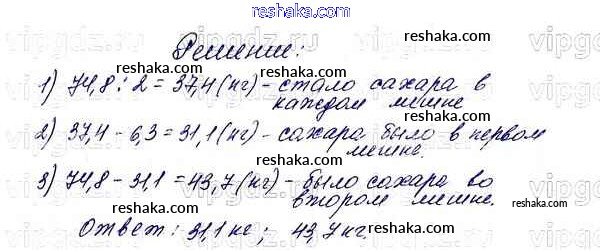 reshaka.com
Решение:
reshaka.com
1) 74,8 : 2 = 37,4 (кг) - стало сахара в
каждом мешке
reshaka.com
2) 37,4 - 6,3 = 31,1 (кг) - сахара было в первом
мешке.
reshaka.com
3) 74,8 - 31,1 = 43,7 (кг) - было сахара во
втором мешке.
reshaka.com
Ответ: 31,1 кг; 43,7 кг.
reshaka.com